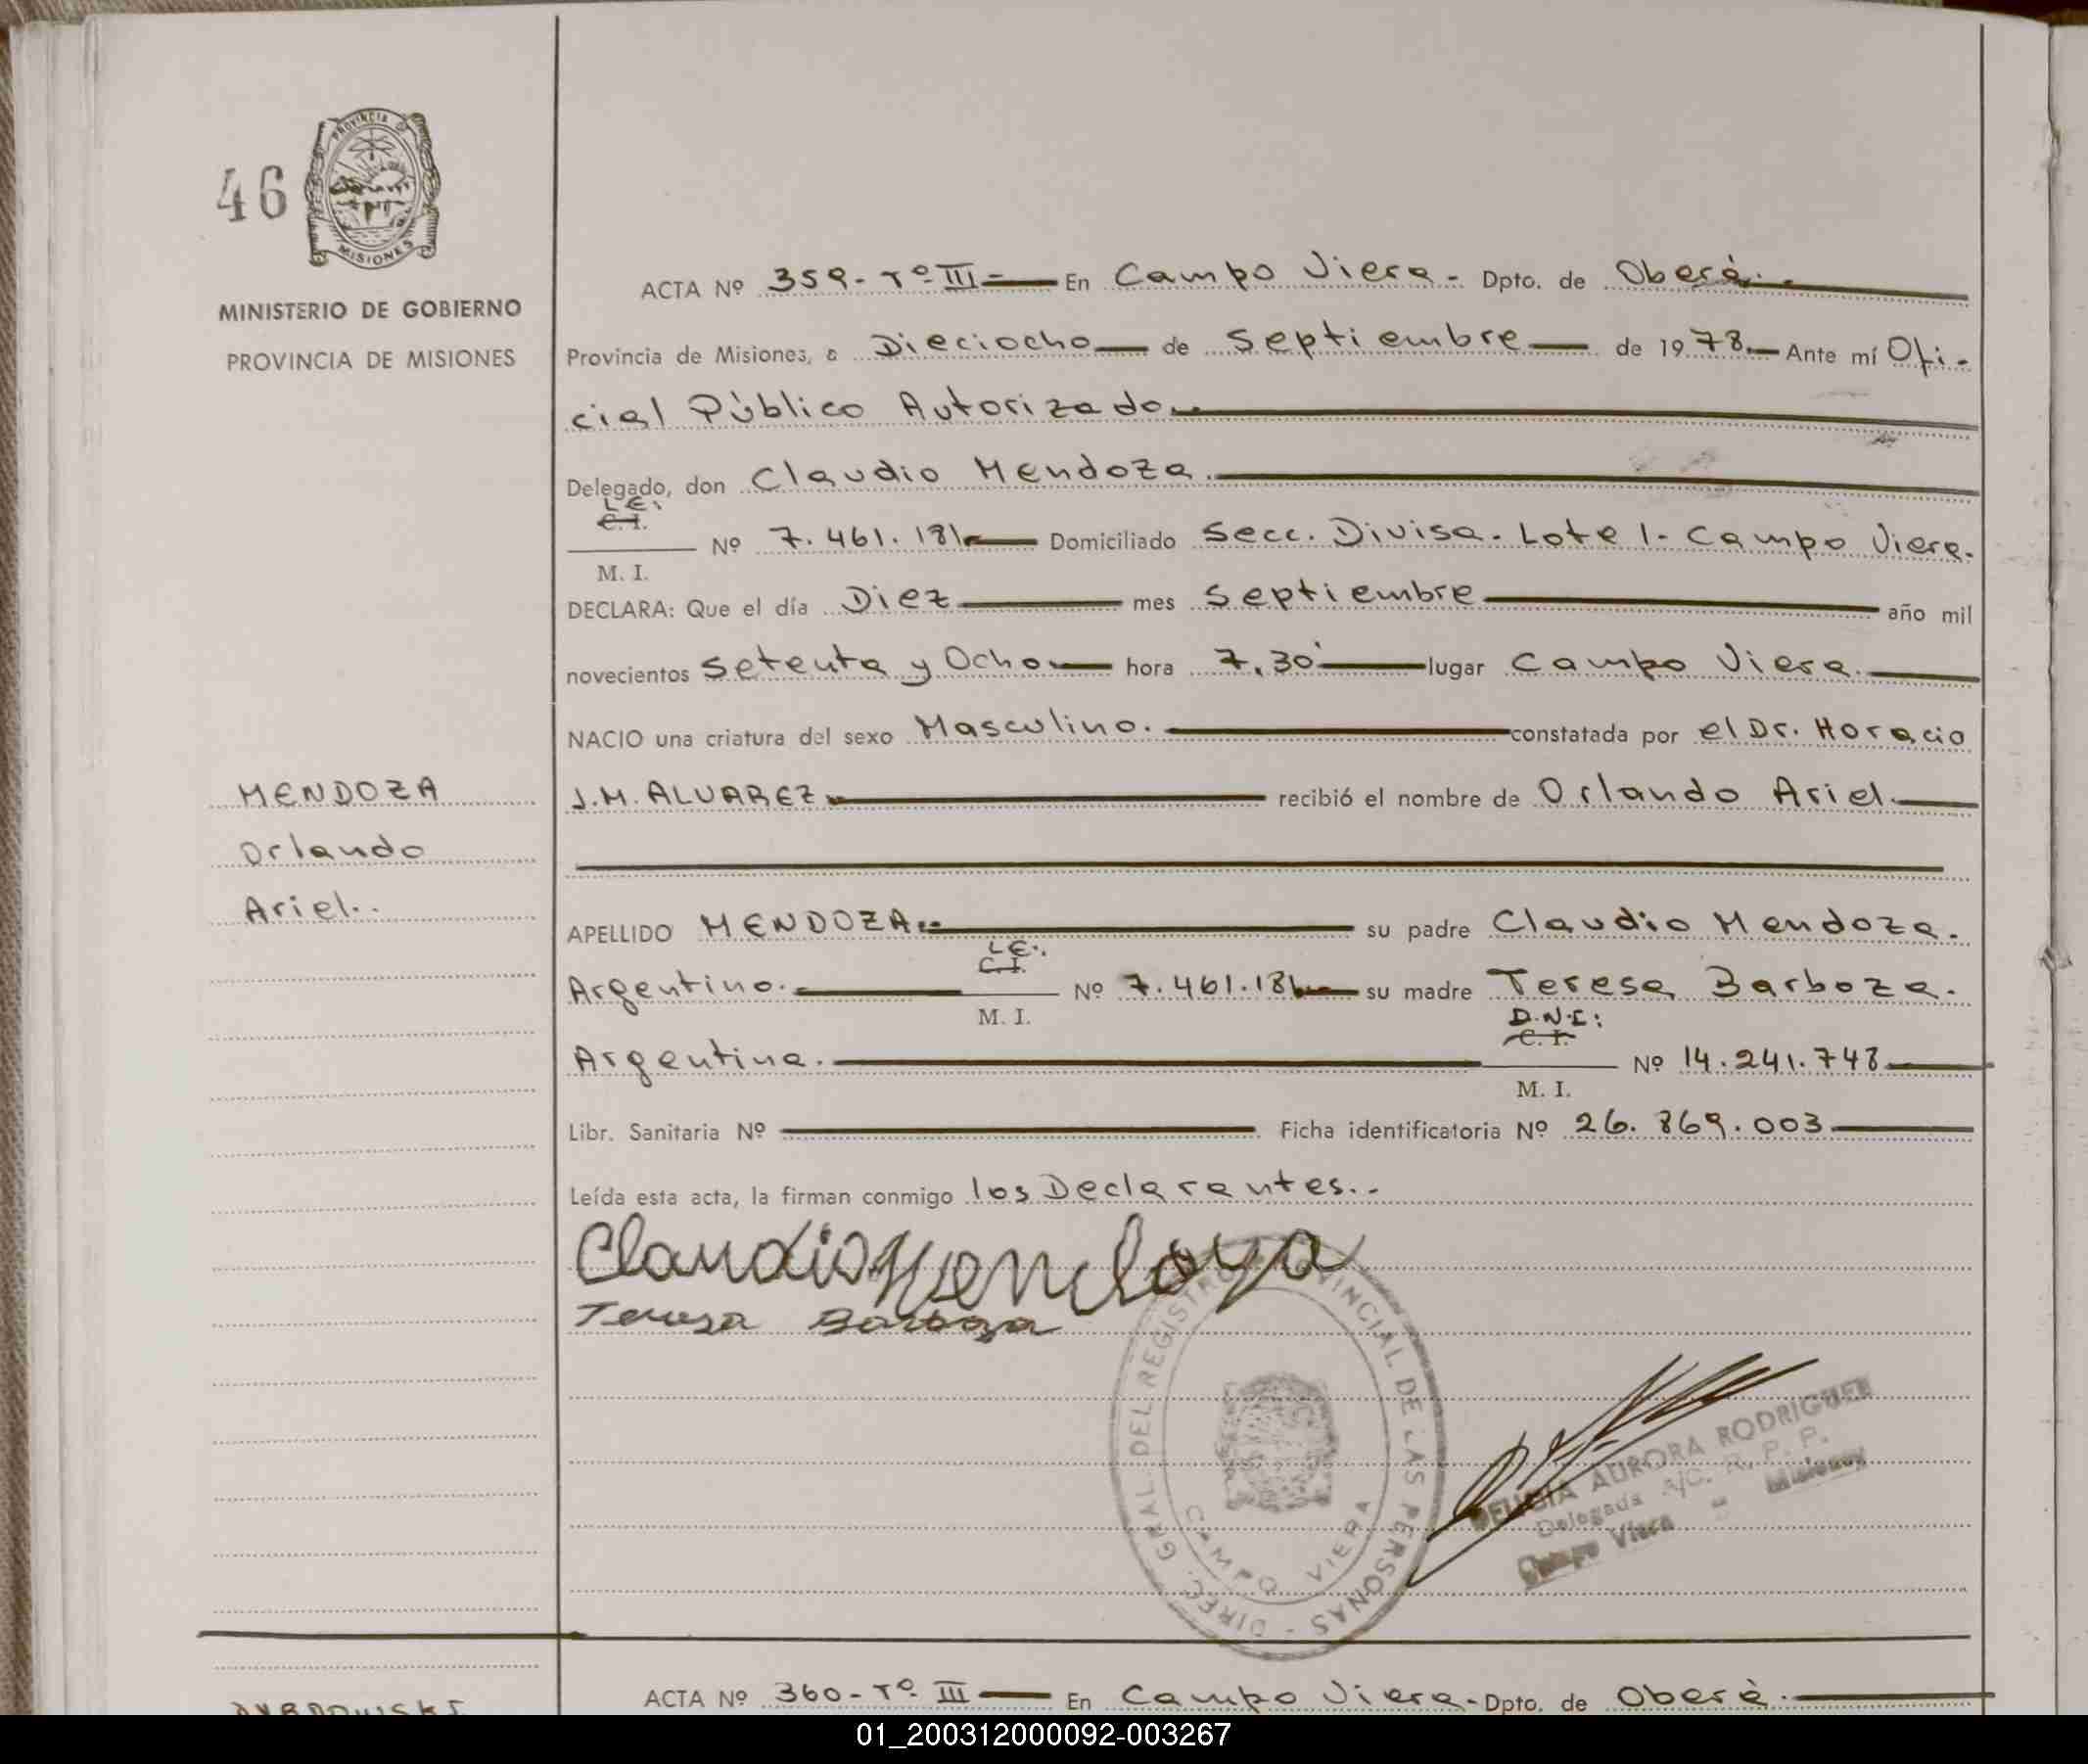 46
PROVINCIA DE
MISIONES
MINISTERIO DE GOBIERNO
PROVINCIA DE MISIONES
ACTA Nº 359-Tº III- En Campo Viera- Dpto. de Oberá.-
Provincia de Misiones, a Dieciocho de Septiembre de 1978.- Ante mí Ofi-
cial Público Autorizado.
Delegado, don Claudio Mendoza.
L.E:
C.I.
M. I.
Nº 7.461.181 Domiciliado Secc. Divisa. Lote 1- Campo Viera.
DECLARA: Que el día Diez mes Septiembre año mil
novecientos Setenta y Ocho hora 7,30 lugar Campo Viera.
NACIO una criatura del sexo Masculino. constatada por el Dr. Horacio
J.M. ALVAREZ. recibió el nombre de Orlando Ariel.
MENDOZA
Orlando
Ariel..
APELLIDO MENDOZA.. su padre Claudio Mendoza.
L.E:.
C.I.
Argentino. M. I. Nº 7.461.181 su madre Teresa Barboza.
D.N.I:
C.I.
Argentina. M. I. Nº 14.241.748
Libr. Sanitaria Nº Ficha identificatoria Nº 26.869.003
Leída esta acta, la firman conmigo los Declarantes..
Claudio Mendoza
Teresa Barboza
DIREC. GRAL. DEL REGISTRO PROVINCIAL DE LAS PERSONAS -
CAMPO VIERA
AURORA RODRIGUEZ
Delegada A/C. R. P. P.
Campo Viera - Misiones
ACTA Nº 360-Tº III En Campo Viera- Dpto. de Oberá.
01_200312000092-003267